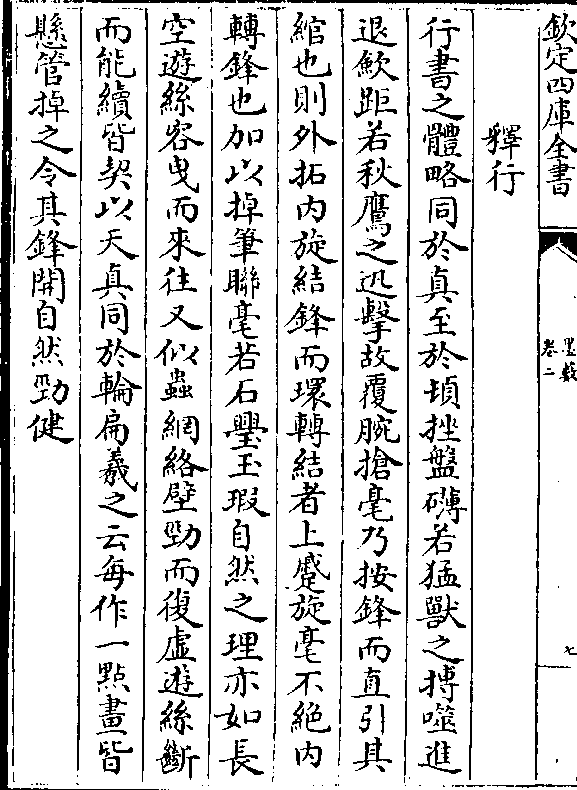 欽定四庫全書
墨藪
卷二
七
釋行
行書之體略同於真至於頓挫盤礴若猛獸之搏噬進
退𣤶距若秋鷹之迅擊故覆腕搶毫乃按鋒而直引其
綰也則外拓内旋結鋒而環轉結者上蹙旋毫不絶内
轉鋒也加以掉筆聯毫若石璺玉瑕自然之理亦如長
空遊絲容曳而來往又似蟲網絡壁勁而復虛遊絲斷
而能續皆契以天真同於輪扁羲之云每作一點畫皆
懸管掉之令其鋒開自然勁健